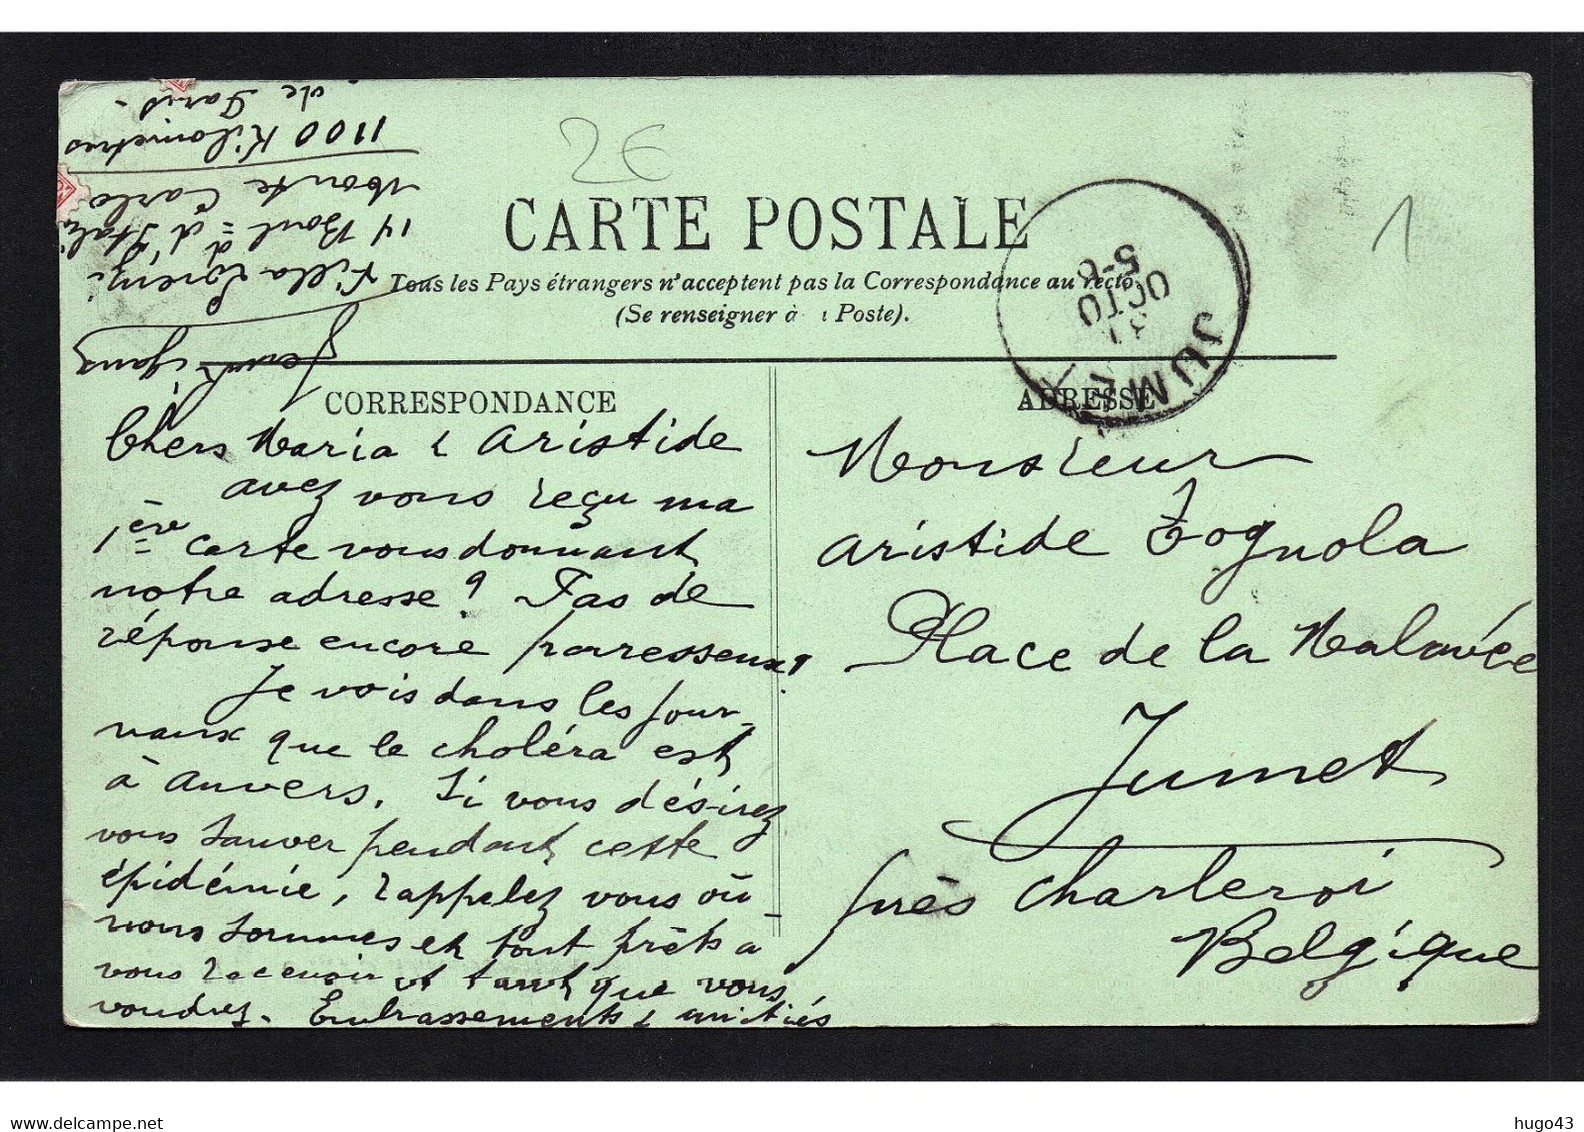 CARTE POSTALE
Tous les Pays étrangers n'acceptent pas la Correspondance au recto,
(Se renseigner à Poste).
CORRESPONDANCE
Chers Maria & Aristide
avez vous reçu ma
1ère carte vous donnant
notre adresse? Pas de
réponse encore paresseux?
Je vois dans les jour-
naux que le choléra est
à Anvers. Si vous désirez
vous sauver pendant cette
épidémie, rappelez vous où
nous sommes et tout prêts à
vous recevoir et tant que vous
voudrez. Embrassements & amitiés
Villa
14 Boul d d'Italie
Monte Carlo
1100 Kilomètres
de Paris.
2€
1
JUMET
31
OCTO
5-6
ADRESSE
Monsieur
Aristide Tognola
Place de la Malavée
Jumet
près Charleroi
Belgique
delcampe.net
hugo43